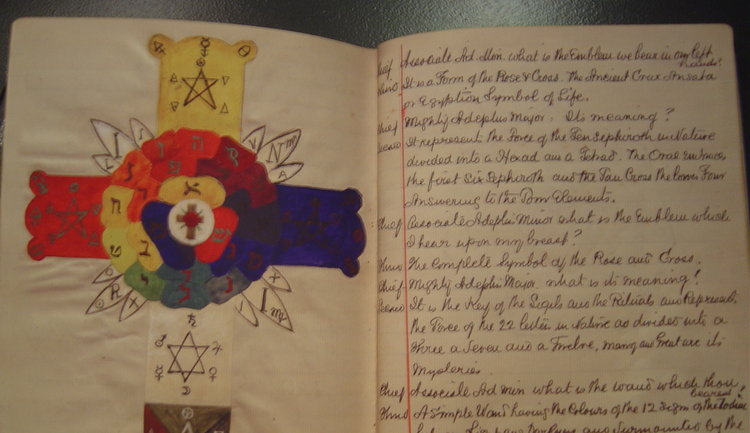 I N
R I
Chief Associate Ad. Min. what is the Emblem we bear in our left hands?
It is a Form of the Rose & Cross. The Ancient Crux Ansata
or Egyptian Symbol of Life.
Chief Mighty Adeptus Major. Its meaning?
It represents the Force of the Ten Sephiroth in Nature
divided into a Hexad and a Tetrad. The Oval embraces
the first Six Sephiroth and the Tau Cross the lower Four
Answering to the Four Elements.
Chief Associate Adeptus Minor what is the Emblem which
I bear upon my breast?
The Complete Symbol of the Rose and Cross.
Chief Mighty Adeptus Major what is its meaning?
It is the Key of the Sigils and the Rituals and Represents
the Force of the 22 letters in Nature as divided into a
Three a Seven and a Twelve, many and Great are its
Mysteries.
Chief Associate Ad min what is the wand which thou bearest?
A Simple Wand having the Colours of the 12 Signs of the Zodiac
and Surmounted by the